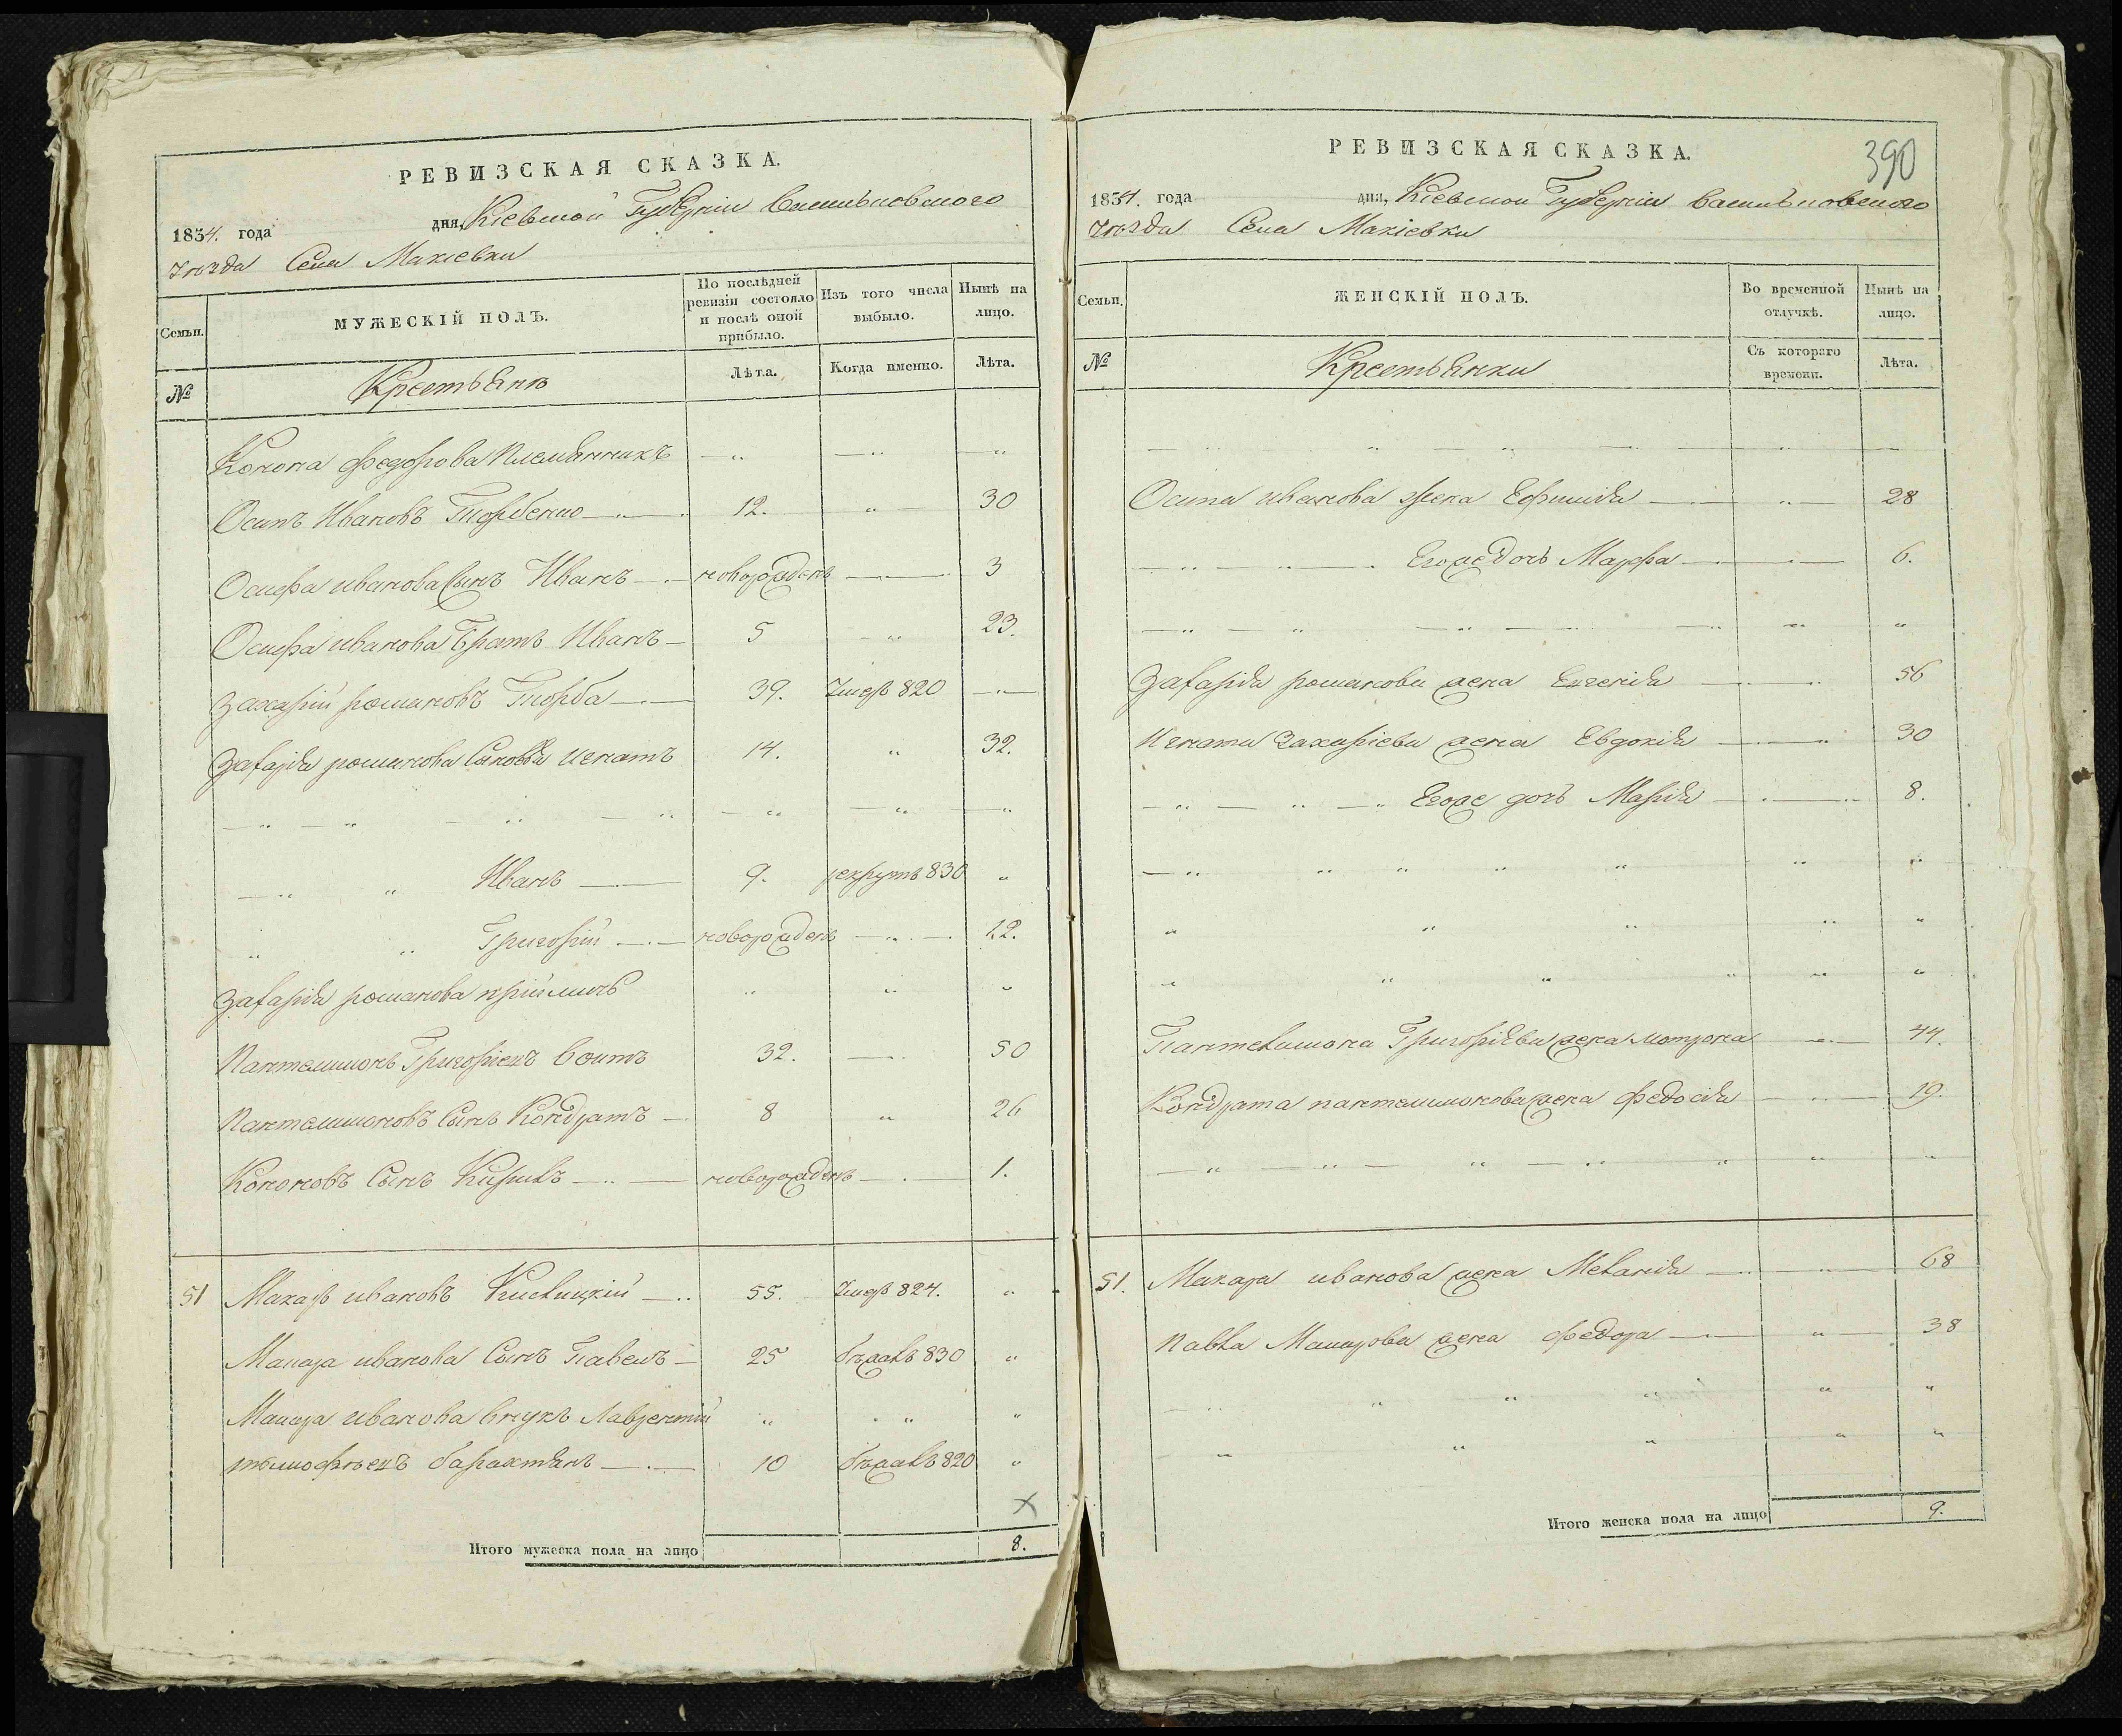 РЕВИЗСКАЯ СКАЗКА.
1834. года дня, Кіевской Губерніи Васильковского
Уѣзда Села Макіевки
Семьи. МУЖЕСКІЙ ПОЛЪ. По послѣдней ревизіи состояло и послѣ оной прибыло. Изъ того числа выбыло. Нынѣ на лицо.
№ Крестьянѣ Лѣта. Когда именно. Лѣта.
Конона федорова племянникъ
Осипъ Ивановъ Торбенко 12. 30
Осифа иванова Сынъ Иванъ новорожденъ 3
Осифа иванова Братъ Иванъ 5 23.
Захарій романовъ Торба 39. Умеръ 820
Захарія романова Сыновья игнатъ 14. 32.
Иванъ 9. рекрутъ 830
Григорій новорожденъ 12.
Захарія романова
Пантелимонъ Григоріевъ Воитъ 32. 50
Пантелимоновъ Сынъ Кондратъ 8 26
Кононовъ Сынъ новорожденъ 1.
51 Макаръ ивановъ 55. Умеръ 824.
Макара иванова Сынъ Павелъ 25 бѣжалъ 830
Макара иванова внукъ Лаврентій
тимофѣевъ 10 бѣжалъ 820
Итого мужеска пола на лицо 8.
390
РЕВИЗСКАЯ СКАЗКА.
1834. года дня, Кіевской Губерніи Васильковского
Уѣзда Села Макіевки
Семьи. ЖЕНСКІЙ ПОЛЪ. Во временной отлучкѣ. Нынѣ на лицо.
№ Крестьянки Съ котораго времени. Лѣта.
иванова жена Ефимія 28
Егоже дочь Марфа 6.
Захарія романова жена Евгенія 56
Игната Захаріева жена Евдокія 30
Егоже дочь Марія 8.
Пантелимона Григоріева жена мотрона 44.
Кондрата пантелимонова жена федосія 19.
51. Макара иванова жена Меланія 68
Павла Макарова жена федора 38
Итого женска пола на лицо 9.